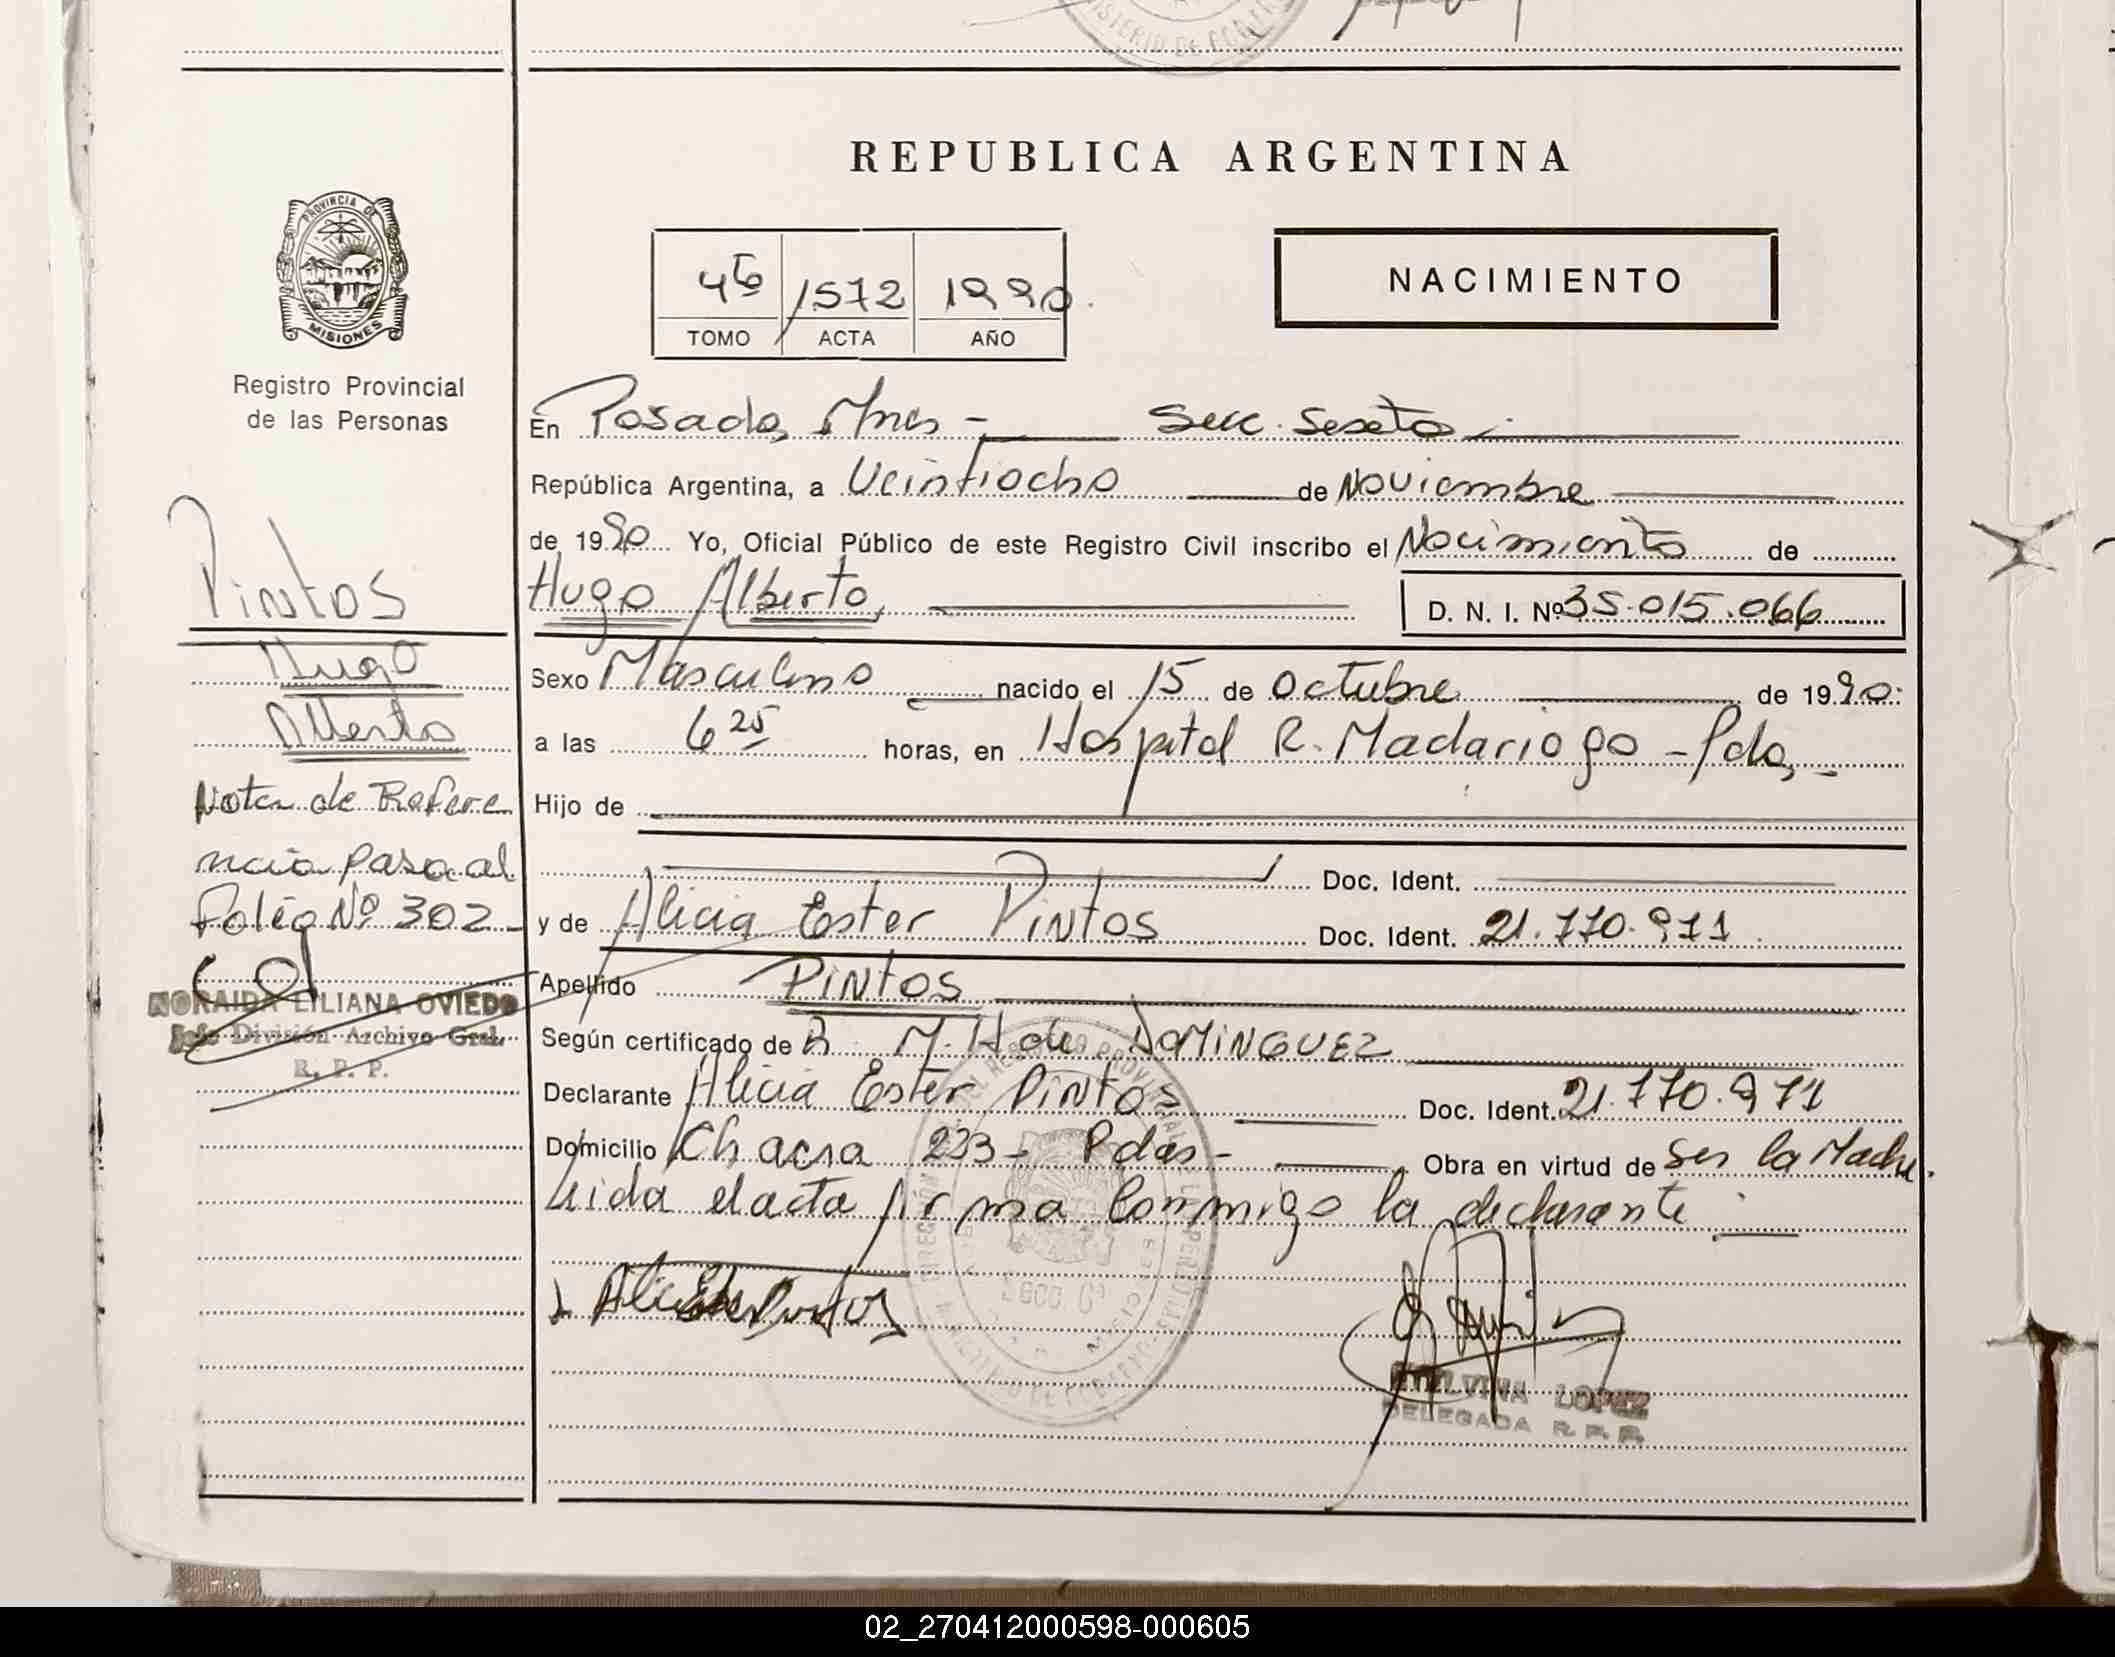 MINISTERIO DE GOBIERNO
REPUBLICA ARGENTINA
PROVINCIA DE
MISIONES
Registro Provincial
de las Personas
1572 1990.
TOMO ACTA AÑO
NACIMIENTO
En Posadas, Mnes - Secc. Sexta
República Argentina, a Veintiocho de Noviembre
de 1990 Yo, Oficial Público de este Registro Civil inscribo el Nacimiento de
Hugo Alberto, D. N. I. Nº 35.015.066
Sexo Masculino nacido el 15 de Octubre de 1990.
a las 6 25 horas, en Hospital R. Madariaga - Pdas, -
Hijo de
Doc. Ident.
y de Alicia Ester Pintos Doc. Ident. 21.770.971
Apellido Pintos
Según certificado de M. H de DOMINGUEZ
Declarante Alicia Ester Pintos Doc. Ident. 21.770.971
Domicilio Chacra 233 - Pdas - Obra en virtud de Ser la Madre.
Leida el acta firma conmigo la declarante
Alicia Ester Pintos
LOPEZ
DELEGADA R. P. P.
Pintos
Hugo
Alberto
Nota de Refere
ncia pasa al
Folio Nº 302 -
NORAIDA LILIANA OVIEDO
Jefe División Archivo Gral.
R. P. P.
02_270412000598-000605